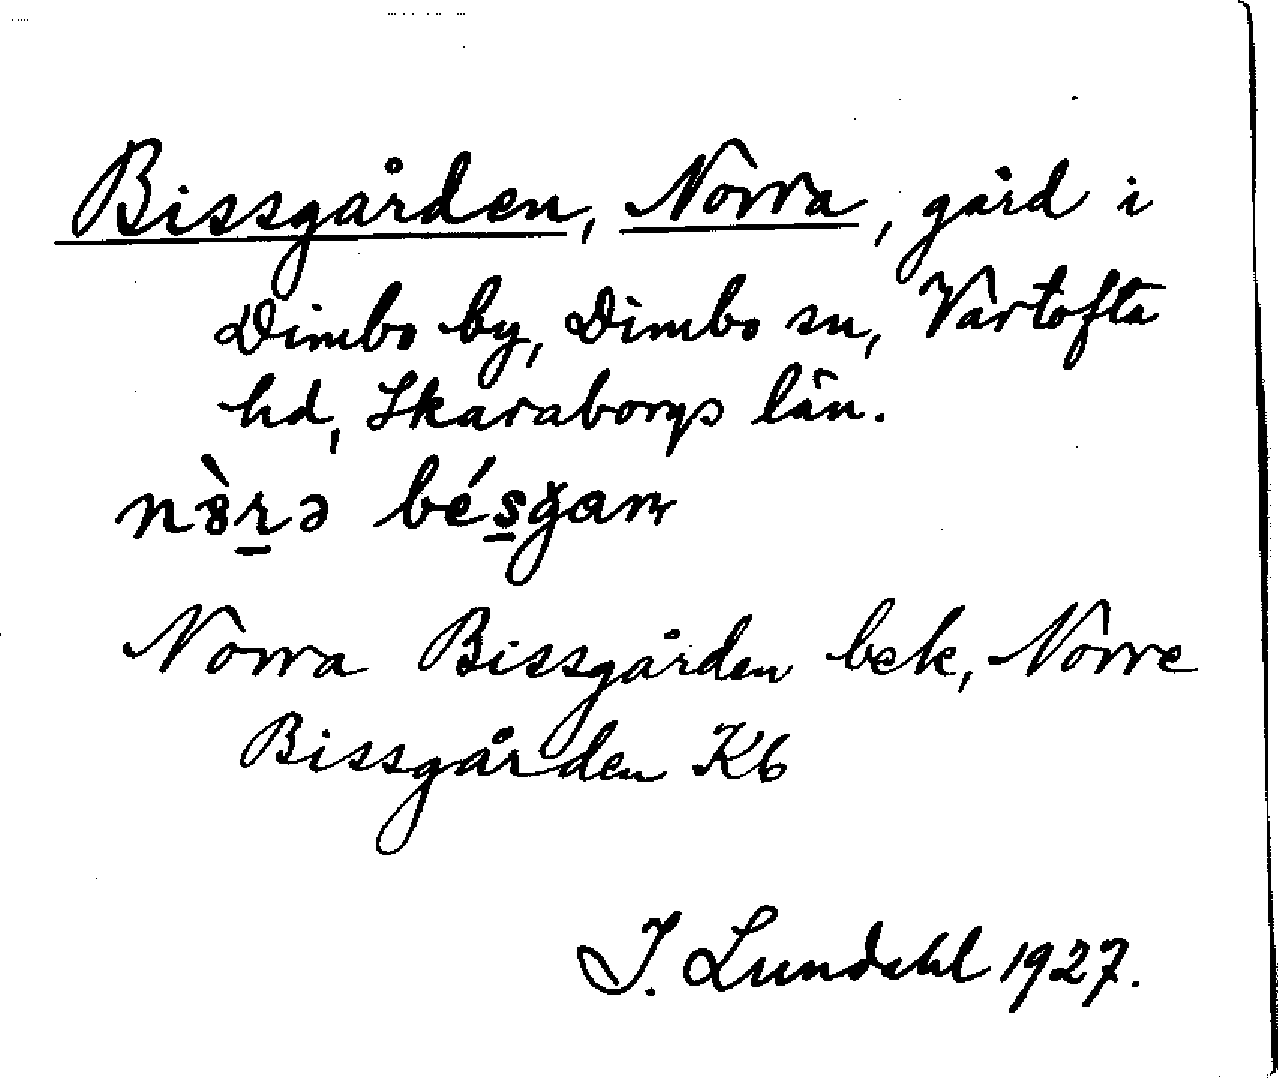 Bissgården, Norra, gård i
Dimbo by, Dimbo sn, Vartofta
hd, Skaraborgs län.
Norra Bissgården bek, Norre
Bissgården Kb
I. Lundahl 1927.